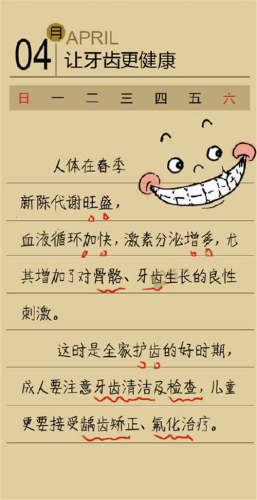 04
月
APRIL
让牙齿更健康
日 一 二 三 四 五 六
人体在春季
新陈代谢旺盛，
血液循环加快，激素分泌增多，尤
其增加了对骨骼、牙齿生长的良性
刺激。
这时是全家护齿的好时期，
成人要注意牙齿清洁及检查，儿童
更要接受龋齿矫正、氟化治疗。